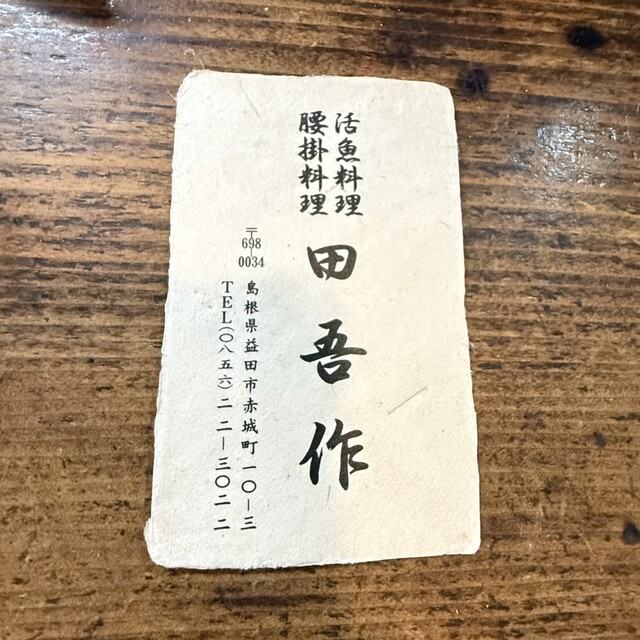 活魚料理
腰掛料理
田吾作
〒698
0034
島根県益田市赤城町一〇―三
TEL(〇八五六)二二―三〇二二